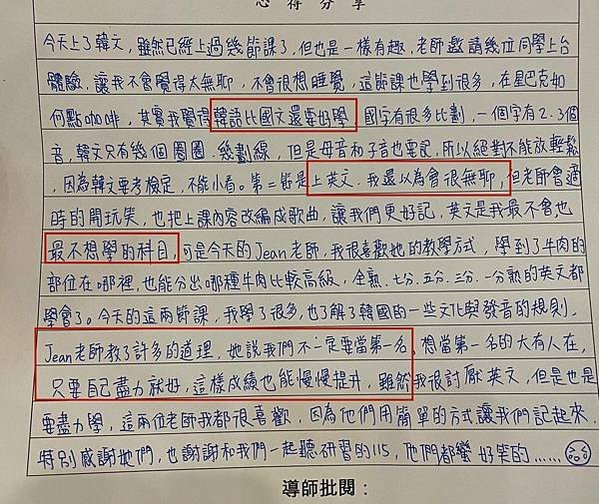 心得分享
今天上了韓文，雖然已經上過幾節課了，但也是一樣有趣，老師邀請幾位同學上台
體驗，讓我不會覺得太無聊，不會很想睡覺，這節課也學到很多，在星巴克如
何點咖啡，其實我覺得韓語比國文還要好學，國字有很多比劃，一個字有2.3個
音，韓文只有幾個圈圈.幾劃線，但是母音和子音也要記，所以絕對不能放輕鬆
，因為韓文要考檢定，不能小看。第二節是上英文，我還以為會很無聊，但老師會適
時的開玩笑，也把上課內容改編成歌曲，讓我們更好記，英文是我最不會也
最不想學的科目，可是今天的Jean老師，我很喜歡她的教學方式，學到了牛肉的
部位在哪裡，也能分出哪種牛肉比較高級，全熟.七分.五分.三分.一分熟的英文都
學會了。今天的這兩節課，我學了很多，也了解了韓國的一些文化與發音的規則，
Jean老師教了許多的道理，她說我們不一定要當第一名，想當第一名的大有人在，
只要自己盡力就好，這樣成績也能慢慢提升，雖然我很討厭英文，但是也是
要盡力學，這兩位老師我都很喜歡，因為他們用簡單的方式讓我們記起來，
特別感謝她們，也謝謝和我們一起聽研習的115，他們都蠻好笑的......
導師批閱：